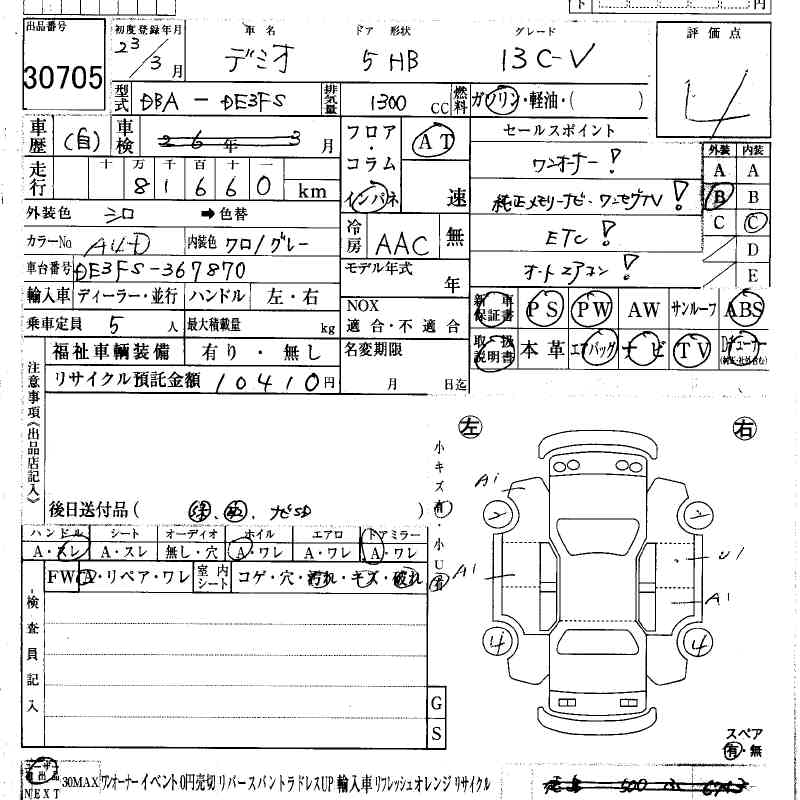 出品番号 30705
初度登録年月 23/3月
車名 デミオ
ドア 形状 5 HB
グレード 13C-V
評価点 4
型式 DBA-DE3FS
排気量 1300 CC
燃料 ガソリン・軽油・( )
車歴 (自)
車検 26年 3月
フロア・コラム インパネ
AT 速
セールスポイント
ワンオーナー!
純正メモリーナビ・ワンセグTV!
ETC!
オートエアコン!
外装 内装
A A
B B
C C
D
E
走行 十万千百十一
81660 km
外装色 シロ ➡色替
カラーNo A4D 内装色 クロ/グレー
冷房 AAC 無
車台番号 DE3FS-367870
モデル年式 年
輸入車 ディーラー・並行 ハンドル 左・右
NOX 適合・不適合
乗車定員 5人 最大積載量 kg
新車保証書 PS PW AW サンルーフ ABS
取扱説明書 本革 エアバッグ ナビ TV Dチューナー
福祉車輌装備 有り・無し
名変期限 月 日迄
リサイクル預託金額 10410円
注意事項《出品店記入》
後日送付品( 保、取、ナビSD )
小キズ有・小U有
左 右
ハンドル シート オーディオ ホイル エアロ ドアミラー
A・スレ A・スレ 無し・穴 A・ワレ A・ワレ A・ワレ
FW A・リペア・ワレ 室内シート コゲ・穴・汚れ・キズ・破れ
検査員記入
A1
2 2
A1 U1
A1
4 4
G
S
スペア
有・無
NEXT 30MAX ワンオーナー イベント 0円売切 リバース バントラ ドレスUP 輸入車 リフレッシュ オレンジ リサイクル